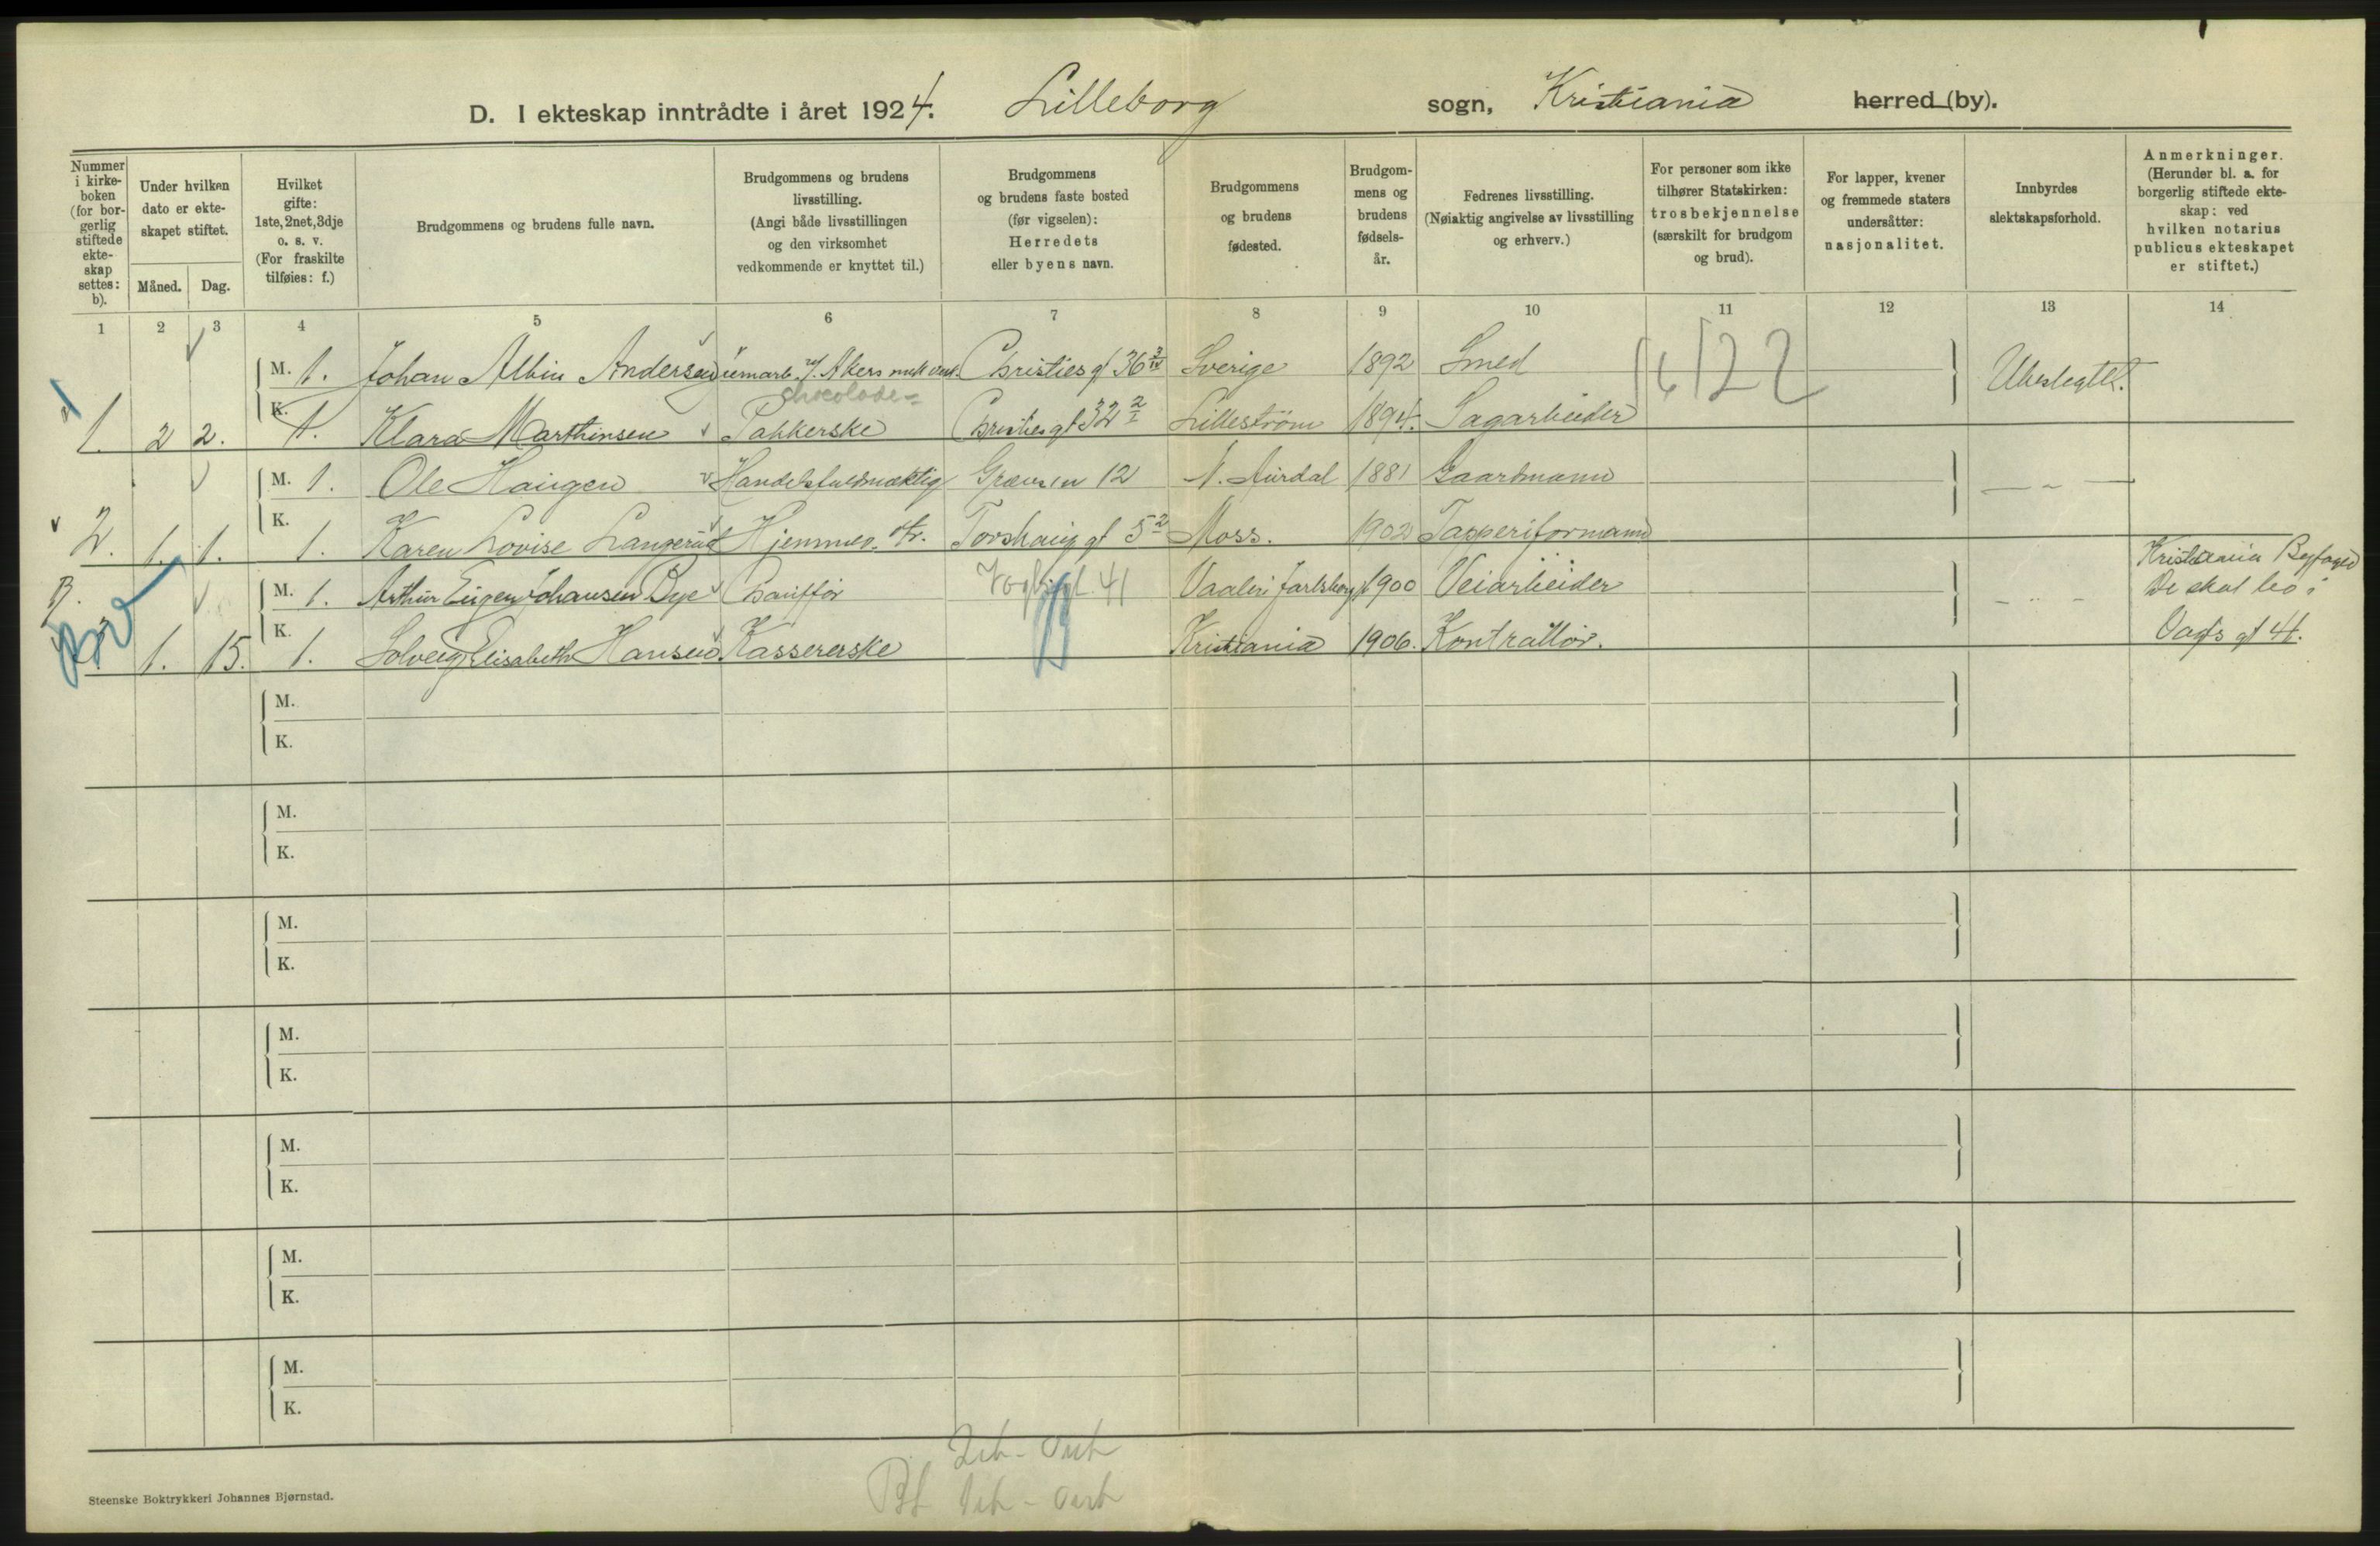 D. I ekteskap inntrådte i året 1924. Lilleborg sogn, Kristiania herred (by).
Nummer i kirkeboken (for borgerlig stiftede ekteskap settes: b).
Under hvilken dato er ekteskapet stiftet.
Måned. Dag.
Hvilket gifte: 1ste, 2net, 3dje o. s. v. (For fraskilte tilføies: f.)
Brudgommens og brudens fulle navn.
Brudgommens og brudens livsstilling. (Angi både livsstillingen og den virksomhet vedkommende er knyttet til.)
Brudgommens og brudens faste bosted (før vigselen): Herredets eller byens navn.
Brudgommens og brudens fødested.
Brudgommens og brudens fødselsår.
Fedrenes livsstilling. (Nøiaktig angivelse av livsstilling og erhverv.)
For personer som ikke tilhører Statskirken: trosbekjennelse (særskilt for brudgom og brud).
For lapper, kvener og fremmede staters undersåtter: nasjonalitet.
Innbyrdes slektskapsforhold.
Anmerkninger. (Herunder bl. a. for borgerlig stiftede ekteskap: ved hvilken notarius publicus ekteskapet er stiftet.)
1 2 3 4 5 6 7 8 9 10 11 12 13 14
M. 1. Johan Albin Andersen Akers mek Christies gt 36 Sverige 1892 Smed 122 Ubeslegtet.
Chocolade-
1. 2 2. K. 1. Klara Marthinsen Pakkerske Christies gt 32 Lillestrøm 1894. Sagarbeider
M. 1. Ole Haugen Handelsfuldmæktig Grænsen 12 N. Aurdal 1881 Gaardmann - " -
2. 1. 1. K. 1. Karen Lovise Langerud Hjemmev. str. Torshaug gt 5 Moss. 1902 Tapperiformann
B. M. 1. Arthur Eugen Johansen Bye Chauffør Vogts gt. 41 Vaaler Jarlsberg 1900 Veiarbeider - " - Kristiania Byfoged De skal bo i
1. 15. K. 1. Solveig Elisabeth Hansen Kassererske Kristiania 1906. Kontrallør. Vogts gt 41.
M.
K.
M.
K.
M.
K.
M.
K.
M.
K.
M.
K.
M.
K.
Steenske Boktrykkeri Johannes Bjørnstad.